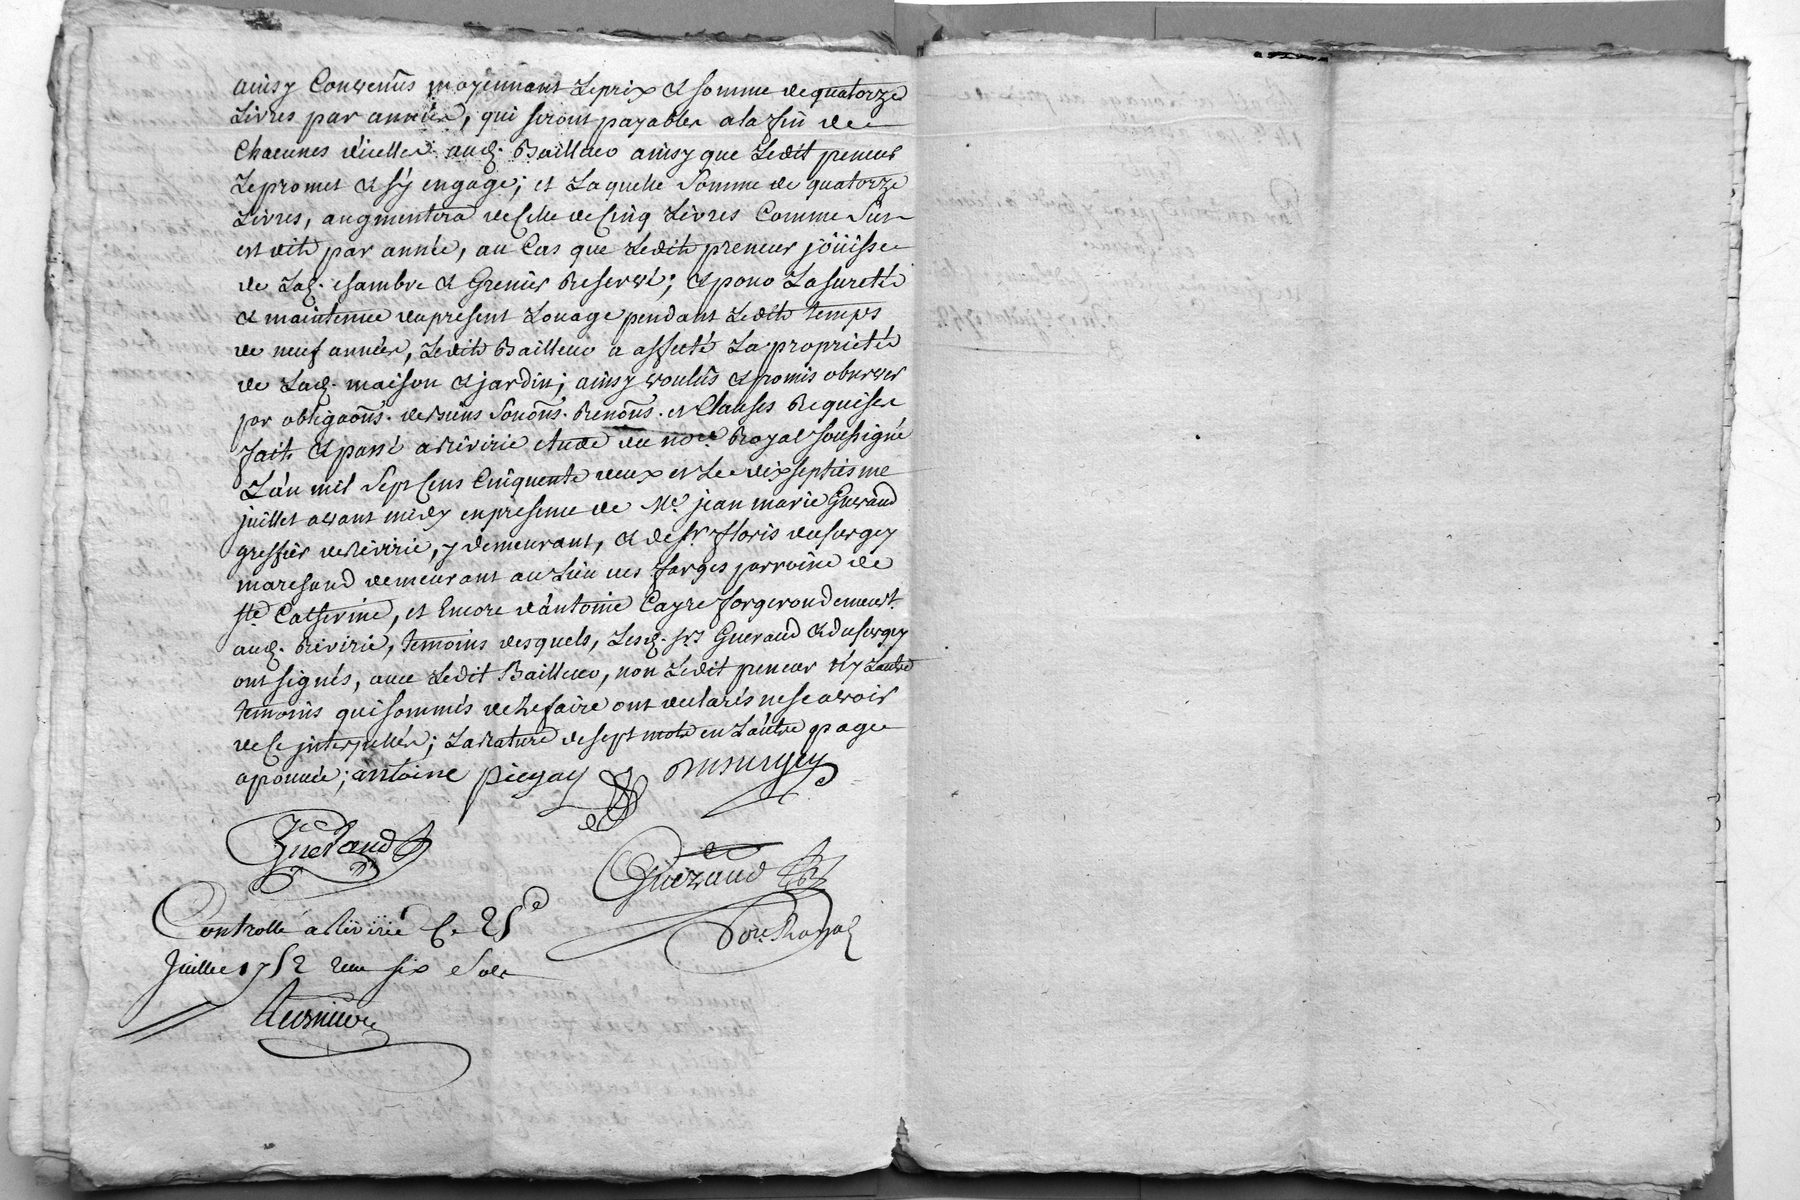 ainsy Convenüs moyennant Le prix & somme de quatorze
Livres par année, qui seront payables a la fin de
Chacunes d'icelles aud. Bailleur ainsy que Ledit preneur
Le promet & s'y engage; et Laquelle Somme de quatorze
Livres, augmentera de Celle de Cinq Livres Comme Sus
est dit par année, au Cas que Ledit preneur joüisse
de Lad. chambre & Grenier Reservé; & pour La sureté
& maintenue du present Louage pendant Ledit temps
de neuf année, Ledit Bailleur a affecté La proprieté
de Lad. maison & jardin; ainsy voulüs & promis observer
par obligaons. de biens Renons. et Clauses Requises
fait & passé a Rivirie etude du nore. Royal soussigné
L'an mil Sept Cens Cinquante deux et Le dix septiesme
juillet avant midy en presence de Me. jean marie Gueraud
greffier de Rivirie, y demeurant, & de sr. floris dusurgey
marchand demeurant au Lieu des farges parroisse de
ste Catherine, et Encore d'antoine Cayre forgeron demeurt.
aud. Rivirie, temoins desquels, Lesd. srs Gueraud & dusurgey
ont signés, avec Ledit Bailleur, non Ledit preneur n'y L'autre
temoins qui sommés de Le faire ont declarés ne scavoir
de Ce interpellés; La Rature de sept mots en L'autre page
aprouvée; antoine piegay dusurgey
Gueraud
Gueraud
Nore. Royal
Controllé a Riviriè Ce 25e
Juillet 1752 Reçu six Sols